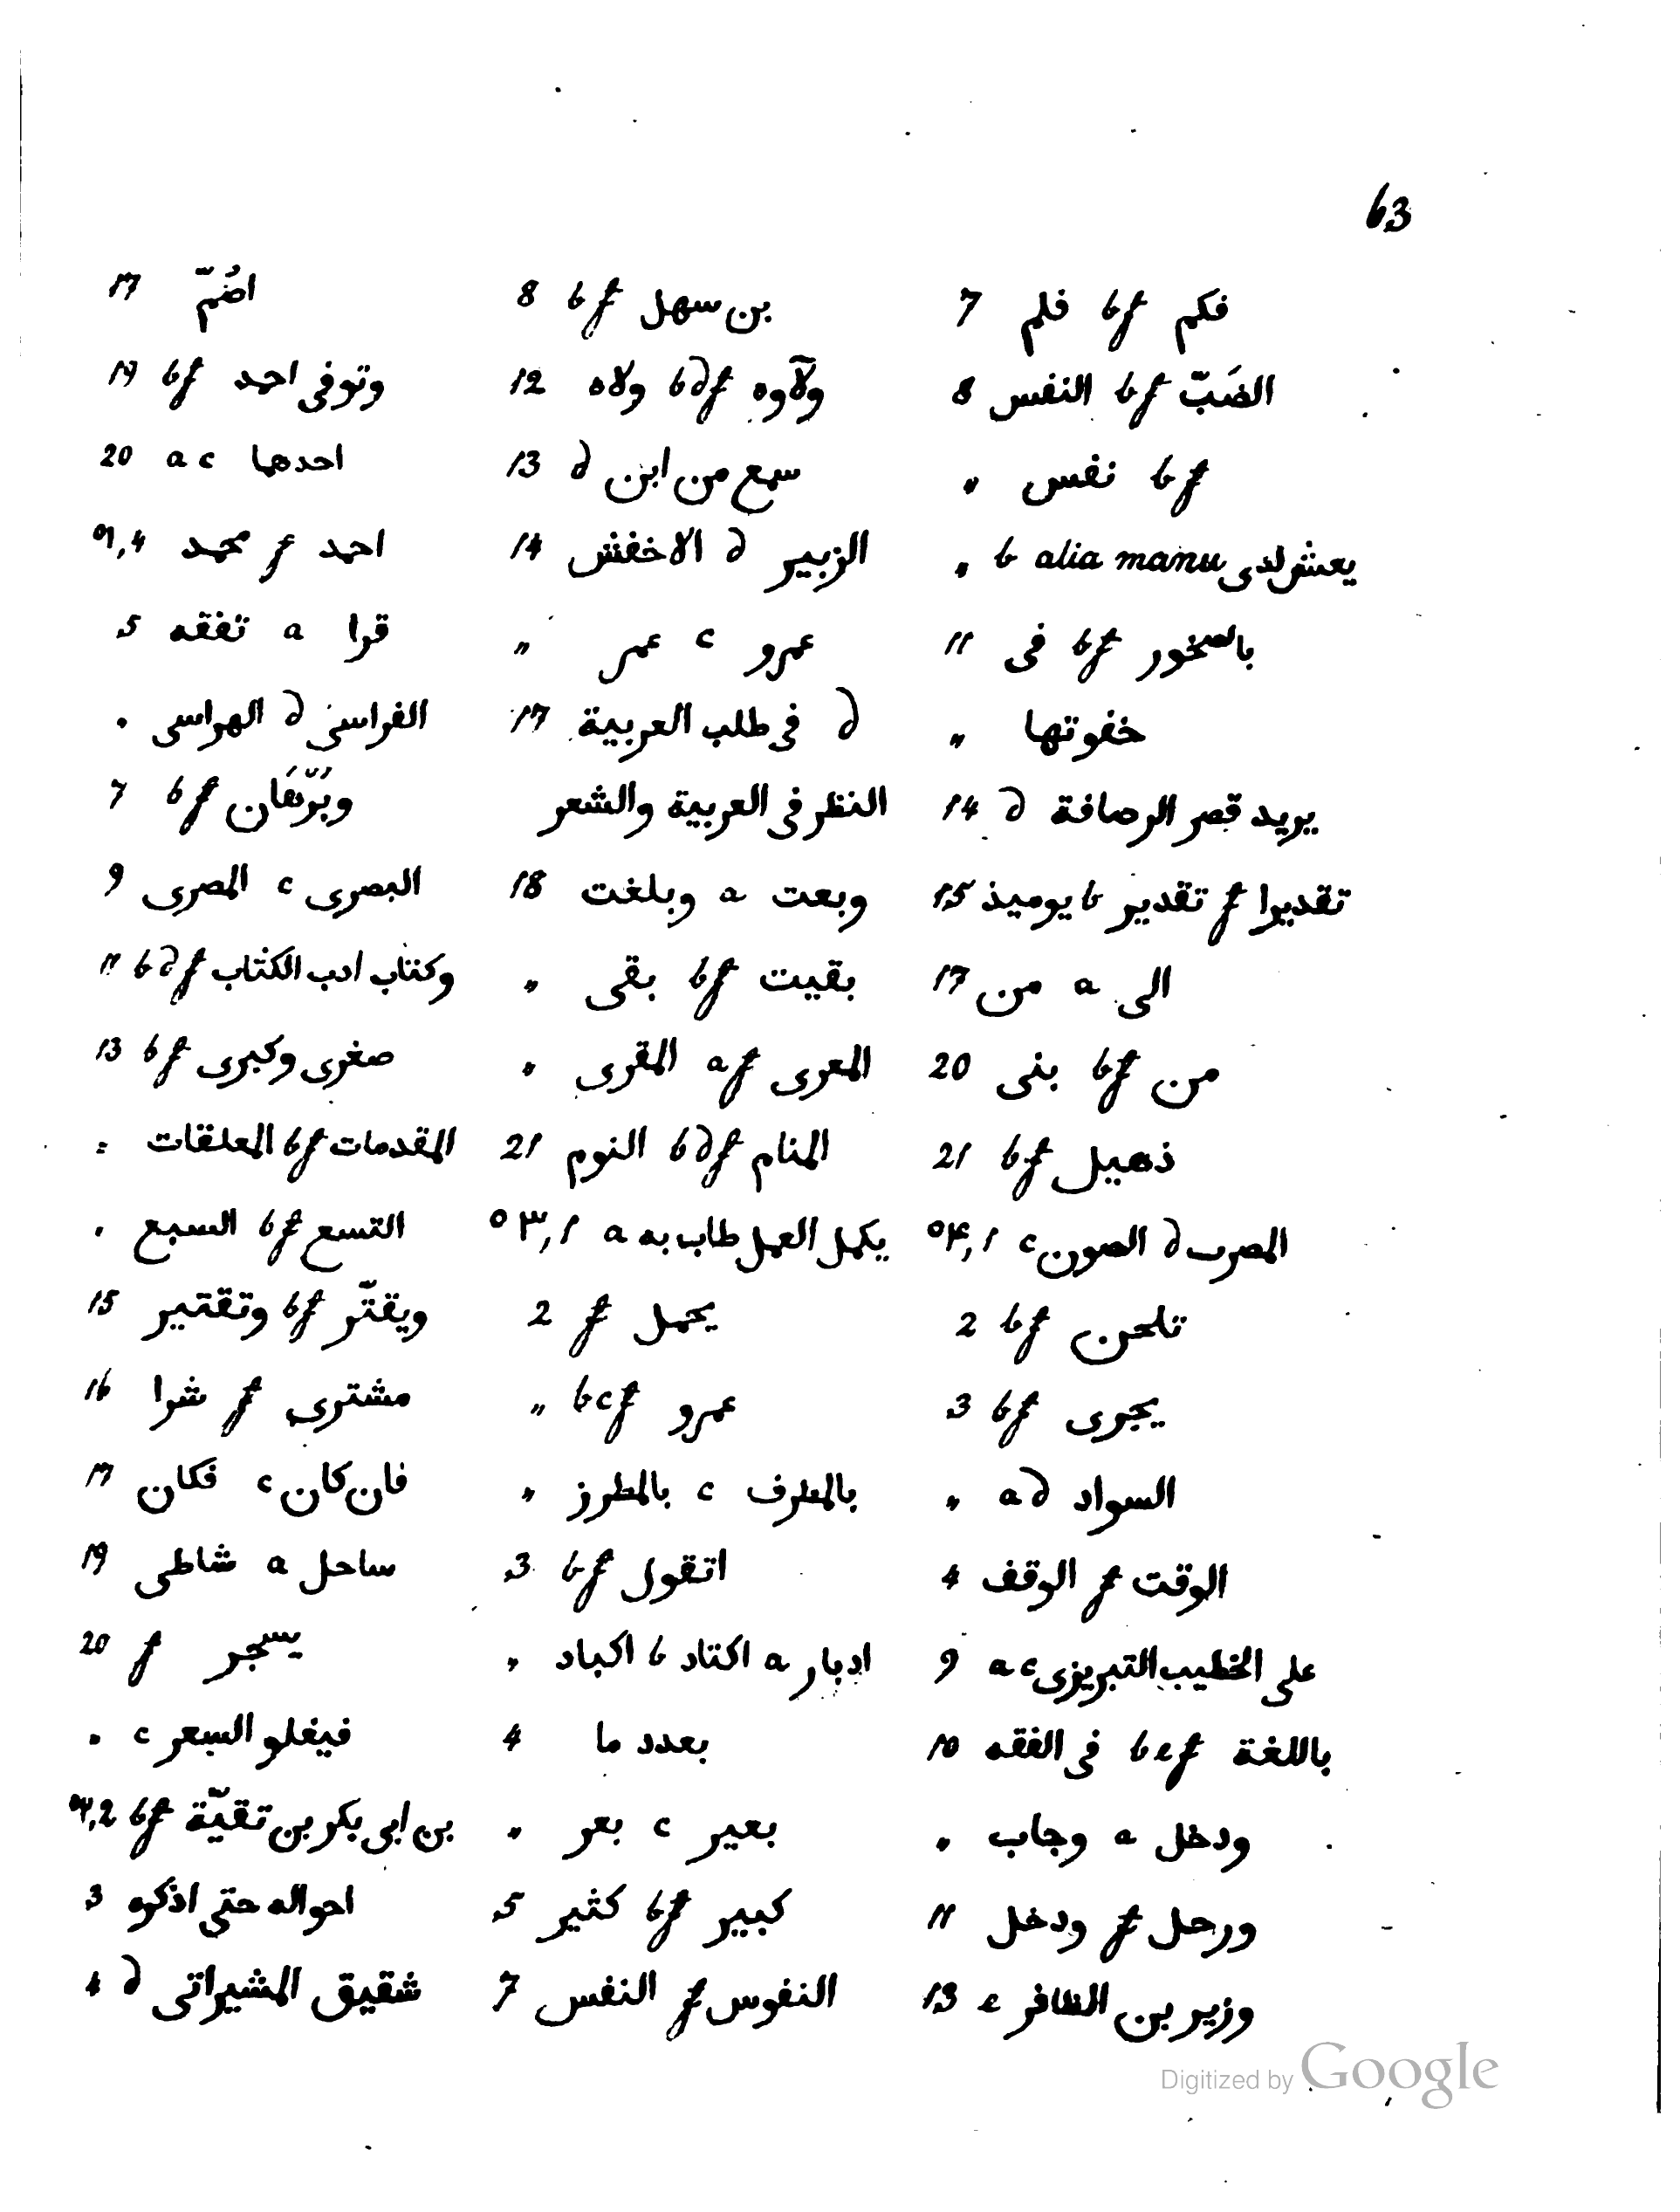 63
فكم bf فلم 7
الضَبّ bf النفس 8
bf نفس "
b alia manu يعش لدى "
بالصخور bf فى 11
خفوتها "
يريد قصر الرصافة d 14
تقديرا f تقدير b يوميذ 15
الى a من 17
من bf بنى 20
ذهيل bf 21
المصرب d الصون c ٥٢,1
تلحن bf 2
يجرى bf 3
السواد ad "
الوقت f الوقف 4
على الخطيب التبريزى ac 9
باللغة bef فى الفقه 10
ودخل a وجاب "
ورحل f ودخل 11
وزير بن الظافر e 13
بن سهل bf 8
ولآوه bdf ولاه 12
سمع من ابن d 13
الزبير d الاخفش 14
عمرو c عمر "
d فى طلب العربية 17
النظر فى العربية والشعر
وبعت a وبلغت 18
بقيت bf بقى "
المعرى af المقرى "
المنام bdf النوم 21
يكمل العمل طاب به a ٥٣,1
يحمل f 2
عمرو bcf "
بالمطرف c بالمطرز "
اتقول bf 3
ادبار a اكتاد b اكباد "
بعدد ما 4
بعير c بعر "
كبير bf كثير 5
النفوس f النفس 7
اضُمّ 17
وتوفى احمد bf 19
احدهما ac 20
احمد f محمد ٥١,4
قرا a تفقه 5
الفراسى d الهراسى "
bf 7
البصرى c المصرى 9
وكتاب ادب الكتاب bdf 11
صغرى وكبرى bf 13
المقدمات bf المعلقات "
التسع bf السبع "
ويقتّر bf وتقتير 15
مشترى f شرا 16
فان كان c فكان 17
ساحل a شاطى 19
يسجر f 20
فيغلو السعر c "
بن ابى بكر بن تقيّة bf ٥٢,2
احواله حتى اذكره 3
شقيق المشيراتى d 4
Digitized by Google